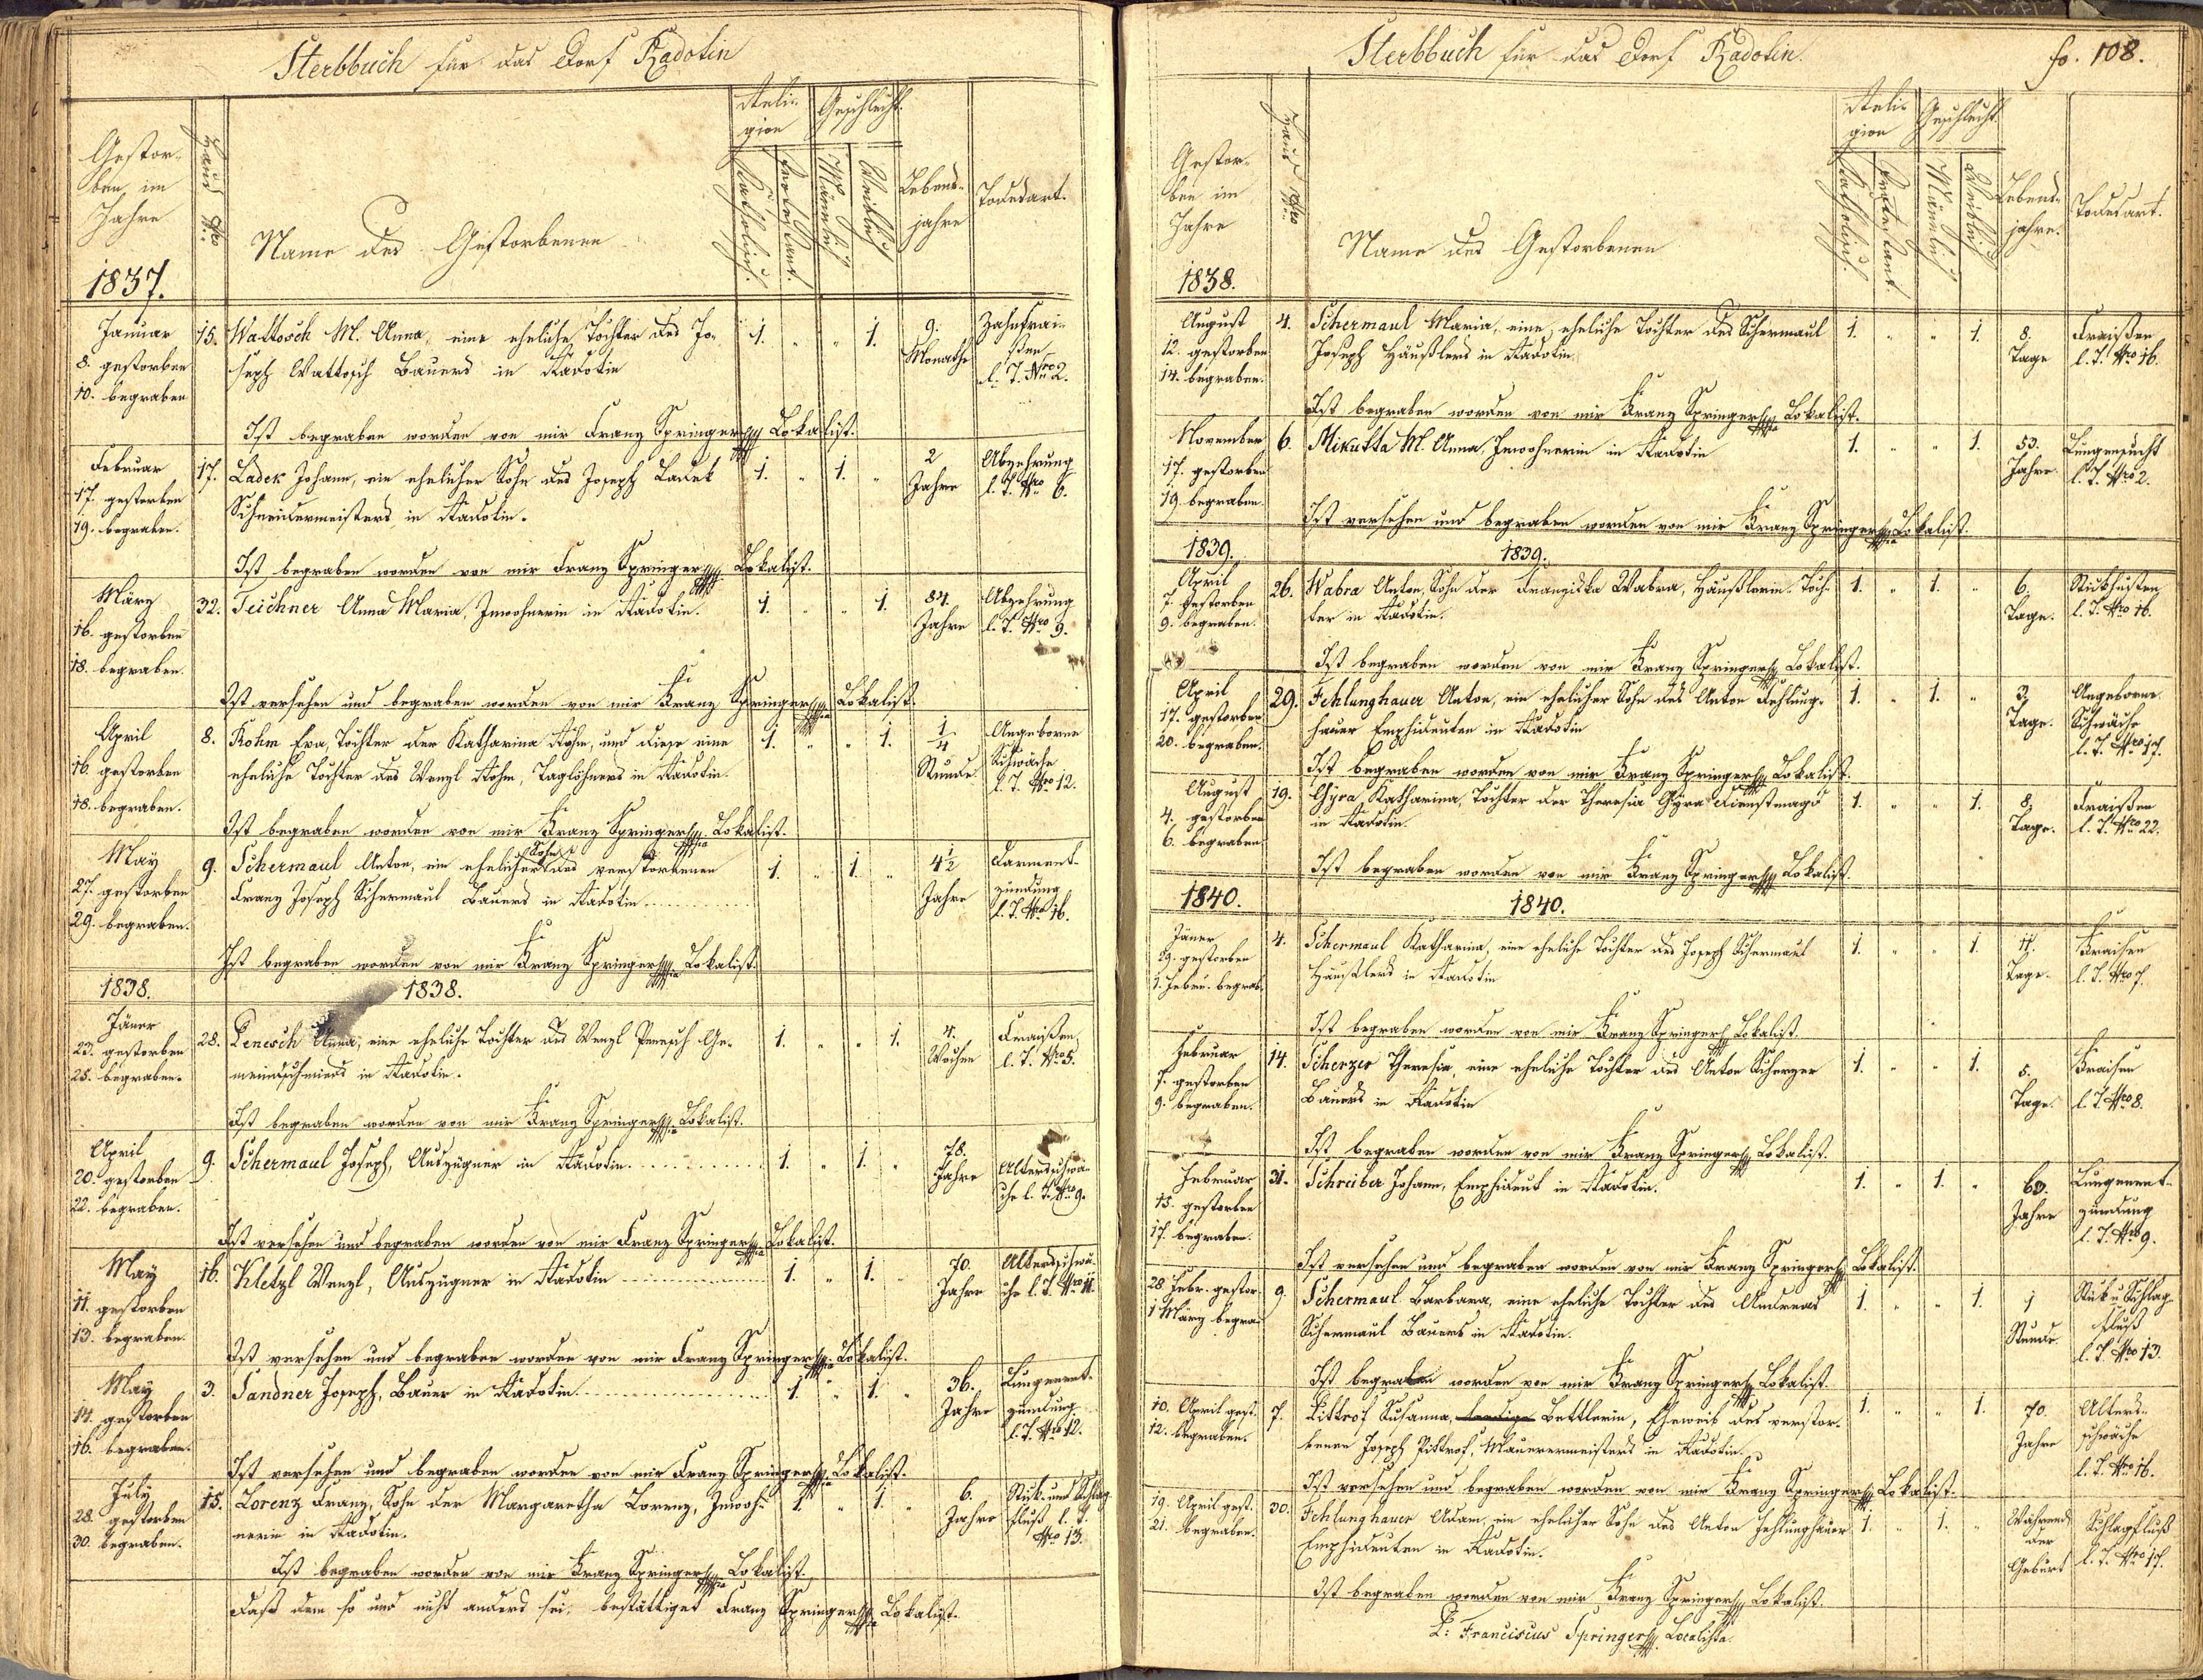 Sterbbuch für das Dorf Radotin
Gestor-
ben im
Jahre
Haus Nro
Name des Gestorbenen
Reli-
gion
Katholisch.
Protestant.
Geschlecht.
Männlich
Weiblich
Lebens-
jahre
Todesart.
1837.
Januar
8. gestorben
10. begraben
15.
Wattosch M. Anna, eine eheliche Tochter des Jo-
seph Wattosch Bauers in Radotin
1. " " 1.
9.
Monathe
Zahnfrai-
sen
l. T. Nro 2.
Ist begraben worden von mir Franz Springer Lokalist.
Februar
17. gestorben
19. begraben.
17.
Ladek Johann, ein ehelicher Sohn des Joseph Ladek
Schneidermeisters in Radotin.
1. " 1. "
2
Jahre
Abzehrung
l. T. Nro 6.
Ist begraben worden von mir Franz Springer Lokalist.
März
16. gestorben
18. begraben.
32.
Teichner Anna Maria, Inwohnerin in Radotin.
1. " " 1.
84.
Jahre
Abzehrung
l. T. Nro 9.
Ist versehen und begraben worden von mir Franz Springer Lokalist.
April
16. gestorben
18. begraben.
8.
Rohm Eva, Tochter der Katharina Rohm, und diese eine
eheliche Tochter des Wenzl Rohm, Taglöhners in Radotin.
1. " " 1.
1/4
Stunde
Angeborne
Schwäche
l. T. Nro 12.
Ist begraben worden von mir Franz Springer Lokalist.
May
27. gestorben
29. begraben.
9.
Schermaul Anton, ein ehelicher Sohn des verstorbenen
Franz Joseph Schermaul Bauers in Radotin
1. " 1. "
4 1/2
Jahre
Darment-
zündung
l. T. Nro 16.
Ist begraben worden von mir Franz Springer Lokalist.
1838. 1838.
Jäner
23. gestorben
25. begraben.
28.
Penesch Anna, eine eheliche Tochter des Wenzl Penesch Ge-
meindschmieds in Radotin.
1. " " 1.
4.
Wochen
Fraißen
l. T. Nro 5.
Ist begraben worden von mir Franz Springer Lokalist.
April
20. gestorben
22. begraben.
9.
Schermaul Joseph, Auszügner in Radotin
1. " 1. "
78.
Jahre
Altersschwä-
che l. T. Nro 9.
Ist versehen und begraben worden von mir Franz Springer Lokalist.
May
11. gestorben
13. begraben.
16.
Kletzl Wenzl, Auszügner in Radotin
1. " 1. "
70.
Jahre
Altersschwä-
che l. T. Nro 11.
Ist versehen und begraben worden von mir Franz Springer Lokalist.
May
14. gestorben
16. begraben.
3.
Sandner Joseph, Bauer in Radotin
1 " 1. "
36.
Jahre
Lungenent-
zündung
l. T. Nro 12.
Ist versehen und begraben worden von mir Franz Springer Lokalist.
July
28. gestorben
30. begraben.
15.
Lorenz Franz, Sohn der Margaretha Lorenz, Inwoh-
nerin in Radotin.
1 " 1. "
6.
Jahre
Stick- und Schlag-
fluß l. T.
Nro 13.
Ist begraben worden von mir Franz Springer Lokalist.
Daß dem so und nicht anders sei, bestättiget Franz Springer Lokalist.
Sterbbuch für das Dorf Radotin.
fo. 108.
Gestor-
ben im
Jahre
Haus Nro
Name des Gestorbenen
Reli-
gion
Katholisch.
Protestant.
Geschlecht
Männlich
Weiblich
Lebens-
jahre.
Todesart.
1838.
August
12. gestorben
14. begraben.
4.
Schermaul Maria, eine eheliche Tochter des Schermaul
Joseph Häußlers in Radotin
1. " " 1.
8.
Tage
Fraißen
l. T. Nro 16.
Ist begraben worden von mir Franz Springer Lokalist.
November
17. gestorben
19. begraben.
6.
Mikutta M. Anna, Inwohnerin in Radotin
1. " " 1.
53.
Jahre
Lungensucht
l. T. Nro 2.
Ist versehen und begraben worden von mir Franz Springer Lokalist.
1839. 1839.
April
7. gestorben
9. begraben.
26.
Wabra Anton, Sohn der Franziska Wabra, Häußlerin Toch-
ter in Radotin.
1. " 1. "
6.
Tage.
Stickhusten
l. T. Nro 16.
Ist begraben worden von mir Franz Springer Lokalist.
April
17. gestorben
20. begraben.
29.
Fehlunghauer Anton, ein ehelicher Sohn des Anton Fehlung-
hauer Emphideuten in Radotin
1. " 1. "
3.
Tage.
Angeborne
Schwäche
l. T. Nro 17.
Ist begraben worden von mir Franz Springer Lokalist.
August
4. gestorben
6. begraben
19.
Gÿra Katharina, Tochter der Theresia Gÿra Dienstmagd
in Radotin.
1. " " 1.
8.
Tage.
Fraißen
l. T. Nro 22.
Ist begraben worden von mir Franz Springer Lokalist.
1840. 1840.
Jäner
29. gestorben
1. Febru. begrab.
4.
Schermaul Katharina, eine eheliche Tochter des Joseph Schermaul
Häußlers in Radotin
1. " " 1.
Tage.
Fraisen
l. T. Nro 7.
Ist begraben worden von mir Franz Springer Lokalist.
Februar
7. gestorben
9. begraben.
14.
Scherzer Theresia, eine eheliche Tochter des Anton Scherzer
Bauers in Radotin
1. " " 1.
5.
Tage.
Fraisen
l. T. Nro 8.
Ist begraben worden von mir Franz Springer Lokalist.
Februar
15. gestorben
17. begraben.
31.
Schreiber Johann, Emphideut in Radotin.
1. " 1. "
60.
Jahre
Lungenent-
zündung
l. T. Nro 9.
Ist versehen und begraben worden von mir Franz Springer Lokalist.
28. Febr. gestor-
1 März begra-
9.
Schermaul Barbara, eine eheliche Tochter des Andreas
Schermaul Bauers in Radotin.
1. " " 1.
1
Stunde
Stick u. Schlag-
fluß
l. T. Nro 13.
Ist begraben worden von mir Franz Springer Lokalist.
10. April gest.
12. begraben.
7.
Pittrof Susanna, Bettlerin, Eheweib des verstor-
benen Joseph Pittrof, Mauermeisters in Radotin.
1. " " 1.
70.
Jahre
Alters-
schwäche
l. T. Nro 16.
Ist versehen und begraben worden von mir Franz Springer Lokalist.
19. April gest.
21. begraben.
30.
Fehlunghauer Adam, ein ehelicher Sohn des Anton Fehlunghauer
Emphideuten in Radotin.
1. " 1. "
Während
der
Geburt
Schlagfluß
l. T. Nro 17.
Ist begraben worden von mir Franz Springer Lokalist.
P: Franciscus Springer Localista.